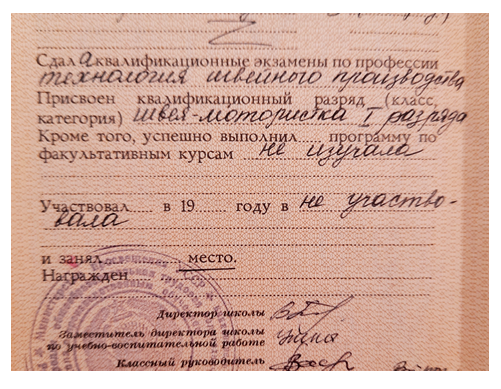 Сдала квалификационные экзамены по профессии
технология швейного производства
Присвоен квалификационный разряд (класс,
категория) швея-мотористка I разряда
Кроме того, успешно выполнил программу по
факультативным курсам не изучала
Участвовал в 19 году в не участво-
вала
и занял место.
Награжден
Директор школы
Заместитель директора школы
по учебно-воспитательной работе
Классный руководитель